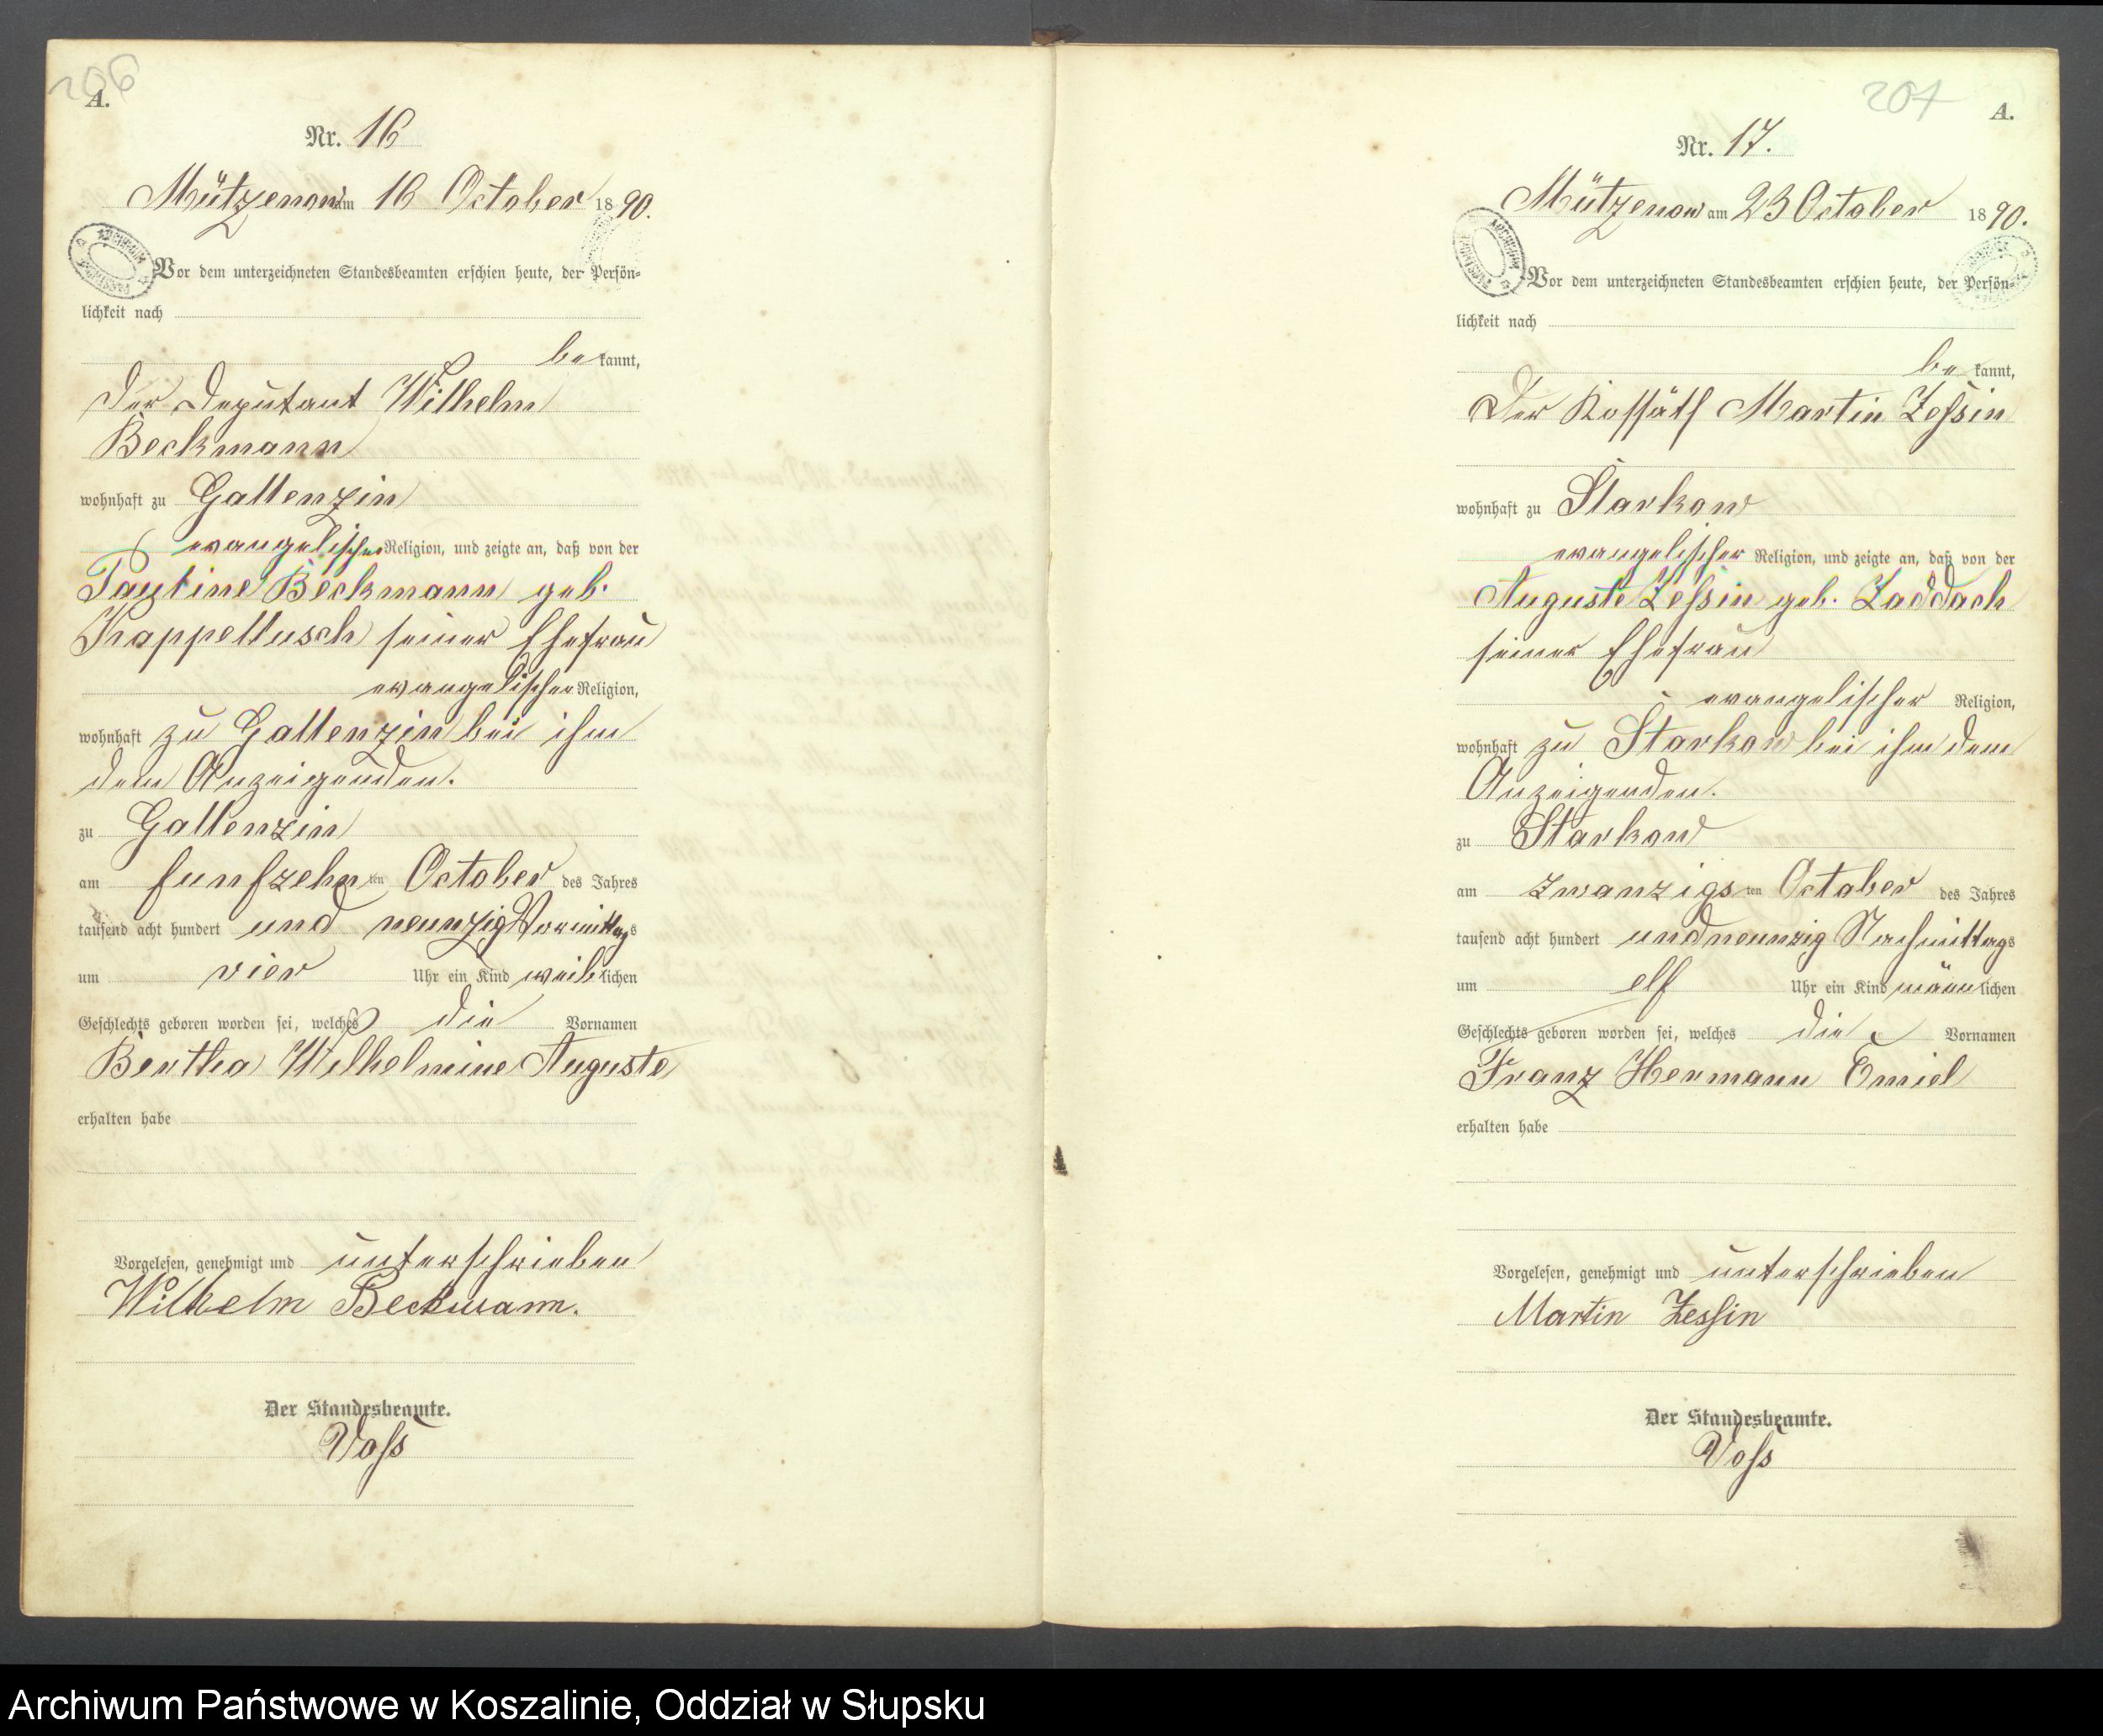 206
A.
Nr. 16
Mützenow am 16 October 1890.
Vor dem unterzeichneten Standesbeamten erschien heute, der Persön-
lichkeit nach
be kannt,
der Deputant Wilhelm
Beckmann
wohnhaft zu Gallenzin
evangelischer Religion, und zeigte an, daß von der
Pauline Beckmann geb.
seiner Ehefrau
evangelischer Religion,
wohnhaft zu Gallenzin bei ihm
dem Anzeigenden.
zu Gallenzin
am funfzehn ten October des Jahres
tausend acht hundert und neunzig Vormittags
um vier Uhr ein Kind weiblichen
Geschlechts geboren worden sei, welches die Vornamen
Bertha Wilhelmine Auguste
erhalten habe
Vorgelesen, genehmigt und unterschrieben
Wilhelm Beckmann.
Der Standesbeamte.
Voß
207
A.
Nr. 17.
Mützenow am 23 October 1890.
Vor dem unterzeichneten Standesbeamten erschien heute, der Persön-
lichkeit nach
be kannt,
Der Kossäth Martin Zessin
wohnhaft zu Starkow
evangelischer Religion, und zeigte an, daß von der
Auguste Zessin geb. Zaddach
seiner Ehefrau
evangelischer Religion,
wohnhaft zu Starkow bei ihm dem
Anzeigenden.
zu Starkow
am zwanzigs ten October des Jahres
tausend acht hundert und neunzig Nachmittags
um elf Uhr ein Kind männlichen
Geschlechts geboren worden sei, welches die Vornamen
Franz Hermann Emiel
erhalten habe
Vorgelesen, genehmigt und unterschrieben
Martin Zessin
Der Standesbeamte.
Voß
Archiwum Państwowe w Koszalinie, Oddział w Słupsku